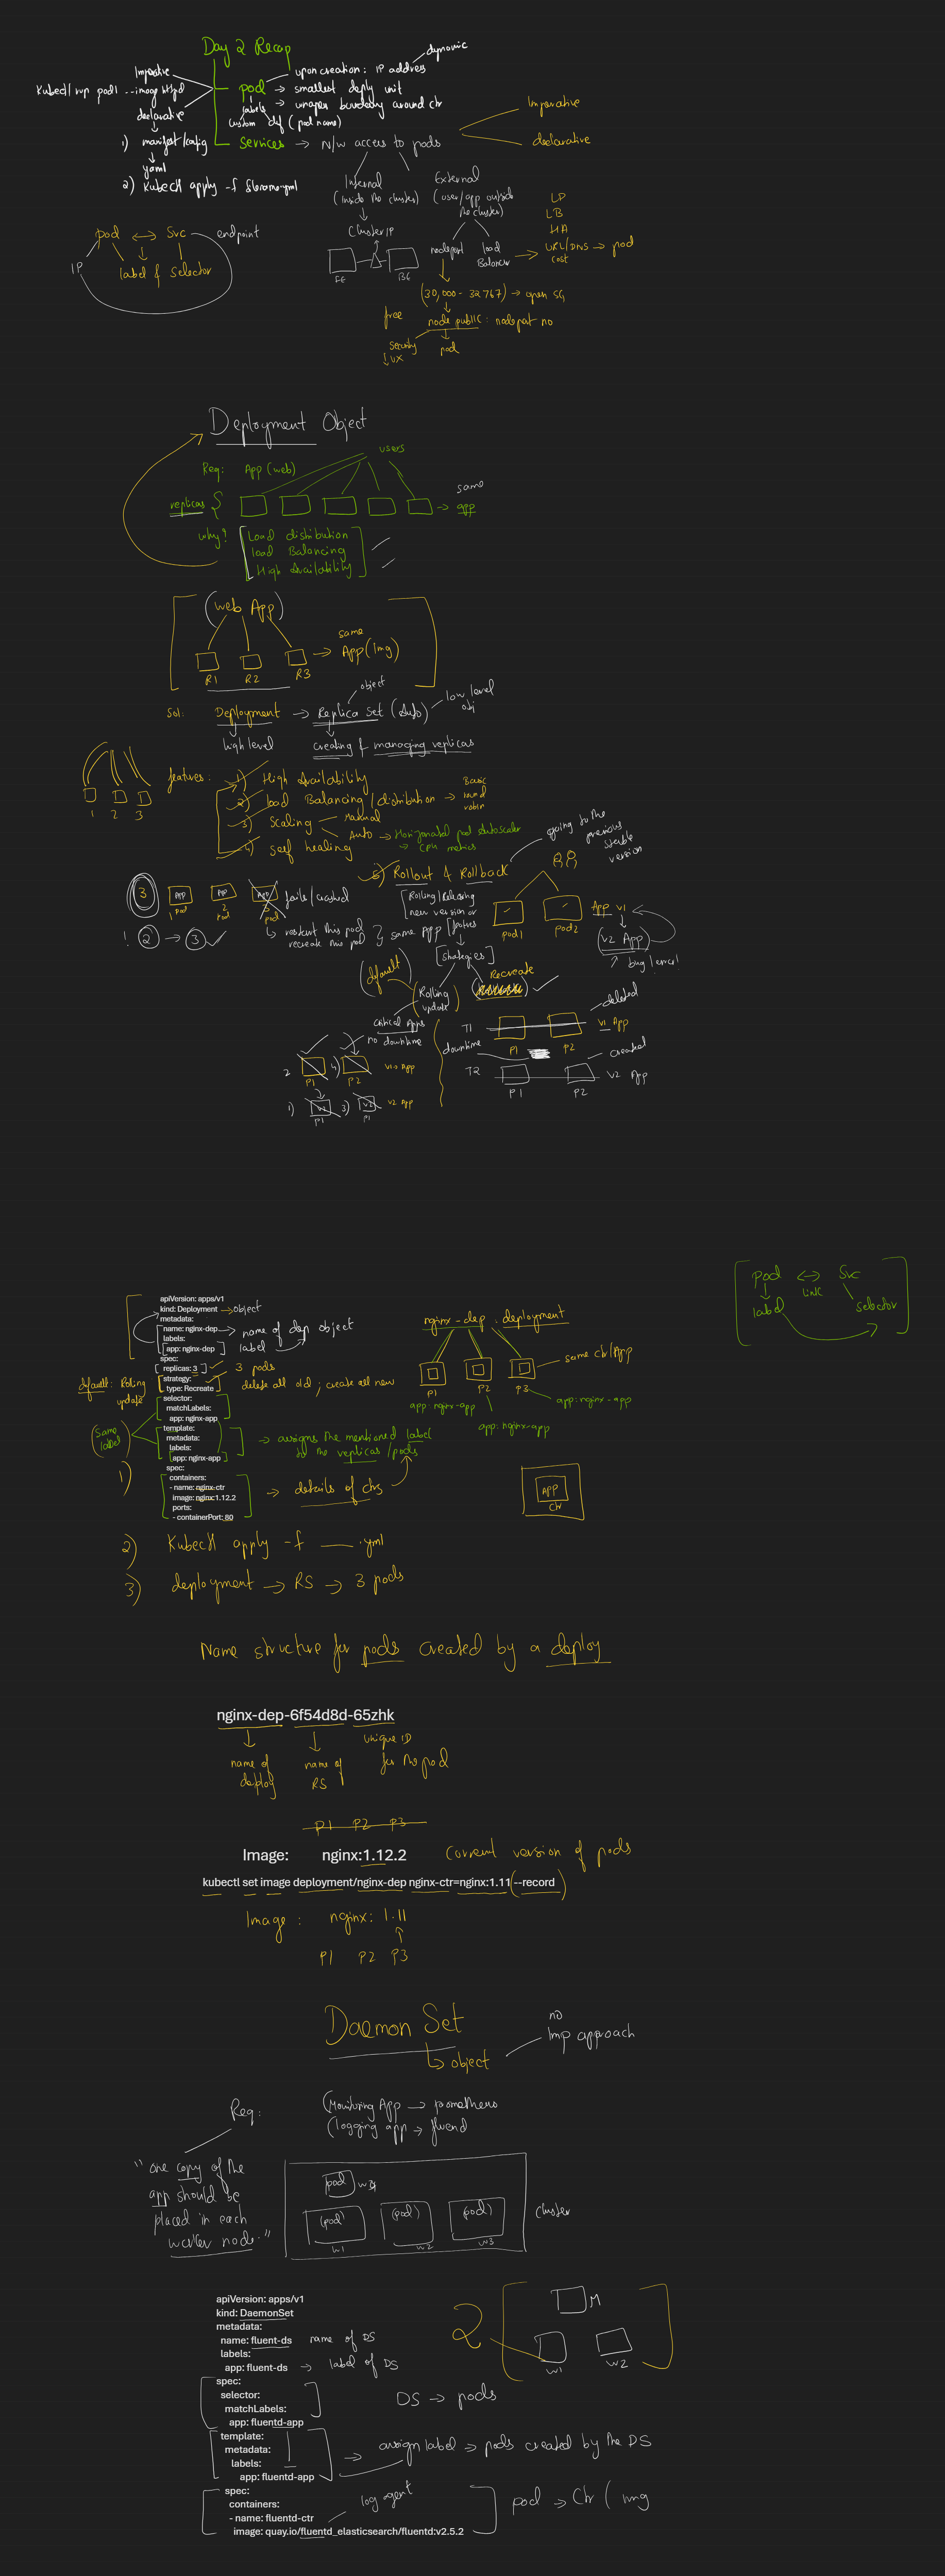 Day 2 Recap
dynamic
Imperative
upon creation: IP address
Kubectl run pod1 --image httpd
pod → smallest deply unit
declarative
labels → wrapes boundary around ctr
custom def (pod name)
Imperative
1) manifest/config
Services → N/w access to pods
declarative
yaml
2) Kubectl apply -f filename.yml
Internal
(Inside the cluster)
External
(user/app outside the cluster)
Cluster IP
FE
BE
nodeport
load Balancer
LP
LB
HA
URL/DNS → pod
cost
pod ↔ Svc
endpoint
IP
label & selector
(30,000 - 32767) → open SG
free
node public : nodeport no
Security
↓UX
pod
Deployment Object
users
Req: App (web)
replicas
→ same app
why?
Load distribution
load Balancing
High Availability
(web App)
R1 R2 R3
→ same App (img)
object
Sol: Deployment → Replica set (Auto)
low level obj
high level
creating & managing replicas
1 2 3
features:
1) High Availability
2) load Balancing / distribution → Basic round robin
3) Scaling
Manual
Auto → Horizonatal pod autoscaler
→ CPU metrics
4) self healing
5) Rollout & Rollback
going to the previous stable version
3
APP APP APP
1 pod 2 pod 3 pod
fails/crashed
↳ restart this pod
recreate this pod
same App
! 2 → 3
[Rolling/Releasing new version or patches
pod1 pod2
App v1
(v2 App)
↑ bug/error!
[Strategies]
(default)
(Rolling update)
Recreate
Critical Apps
no downtime
2 4)
P1 P2
v1 App
1) v2 3) v2
P1 P1
v2 App
T1
deleted
v1 App
P1 P2
downtime
T2
created
v2 App
P1 P2
pod ↔ Svc
link
label
selector
apiVersion: apps/v1
kind: Deployment → object
metadata:
name: nginx-dep → name of dep object
labels:
app: nginx-dep label
spec:
replicas: 3 3 pods
strategy:
type: Recreate delete all old ; create all new
default: Rolling update
selector:
matchLabels:
app: nginx-app
template:
metadata:
labels:
app: nginx-app
(same label)
→ assigns the mentioned label to the replicas/pods
spec:
containers:
- name: nginx-ctr
image: nginx:1.12.2
ports:
- containerPort: 80
1)
→ details of ctrs
nginx-dep : deployment
P1 P2 P3
same ctr/App
app: nginx-app
app: nginx-app
app: nginx-app
APP
Ctr
2) Kubectl apply -f .yml
3) deployment → RS → 3 pods
Name structure for pods created by a deploy
nginx-dep-6f54d8d-65zhk
name of deploy
name of RS
unique ID for the pod
P1 P2 P3
Image: nginx:1.12.2 Current version of pods
kubectl set image deployment/nginx-dep nginx-ctr=nginx:1.11 --record
Image : nginx: 1.11
P1 P2 P3
Daemon Set
↳ object
no Imp approach
Req:
(Monitoring App → prometheus
(logging app → fluend
"one copy of the app should be placed in each worker node."
pod w4
(pod) (pod) (pod)
w1 w2 w3
cluster
apiVersion: apps/v1
kind: DaemonSet
metadata:
name: fluent-ds name of DS
labels:
app: fluent-ds → label of DS
spec:
selector:
matchLabels:
app: fluentd-app
DS → pods
template:
metadata:
labels:
app: fluentd-app
→ assign label → pods created by the DS
spec:
containers:
- name: fluentd-ctr
image: quay.io/fluentd_elasticsearch/fluentd:v2.5.2
log agent
pod → Ctr ( img
2
M
w1 w2